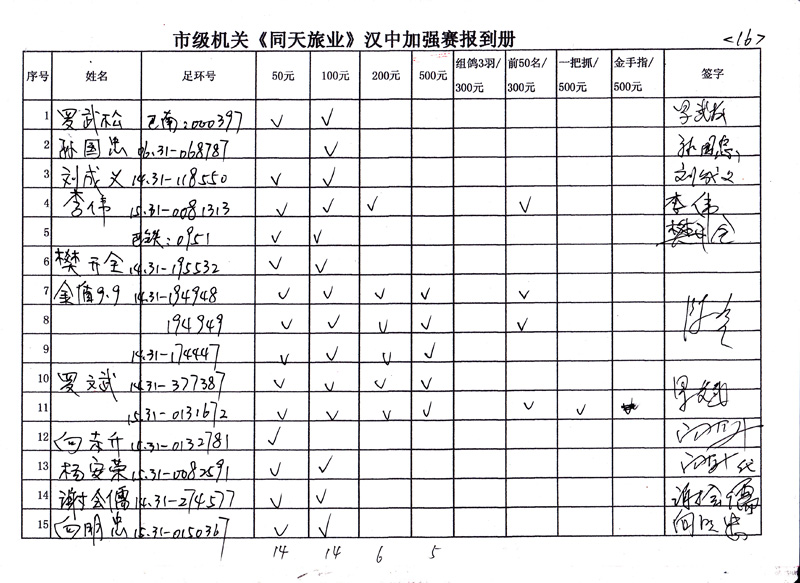 市级机关《同天旅业》汉中加强赛报到册 <16>
序号 姓名 足环号 50元 100元 200元 500元 组鸽3羽/300元 前50名/300元 一把抓/500元 金手指/500元 签字
1 罗武松 巴南:000397 ✓ ✓ 罗武松
2 孙国忠 06.31-068787 ✓ 孙国忠
3 刘成义 14.31-118550 ✓ ✓ 刘成义
4 李伟 15.31-0081313 ✓ ✓ ✓ ✓ 李伟
5 :0951 ✓ ✓ 樊开全
6 樊开全 14.31-195532 ✓ ✓
7 金盾9.9 14.31-194948 ✓ ✓ ✓ ✓ ✓
8 194949 ✓ ✓ ✓ ✓ ✓
9 14.31-174447 ✓ ✓ ✓ ✓
10 罗文武 14.31-377387 ✓ ✓ ✓ ✓ 罗文武
11 15.31-0131672 ✓ ✓ ✓ ✓ ✓ ✓
12 15.31-0132781 ✓
13 杨安荣 15.31-0082591 ✓ ✓ 代
14 谢会儒 14.31-274577 ✓ ✓ 谢会儒
15 向明忠 15.31-0150367 ✓ ✓ 向明忠
14 14 6 5